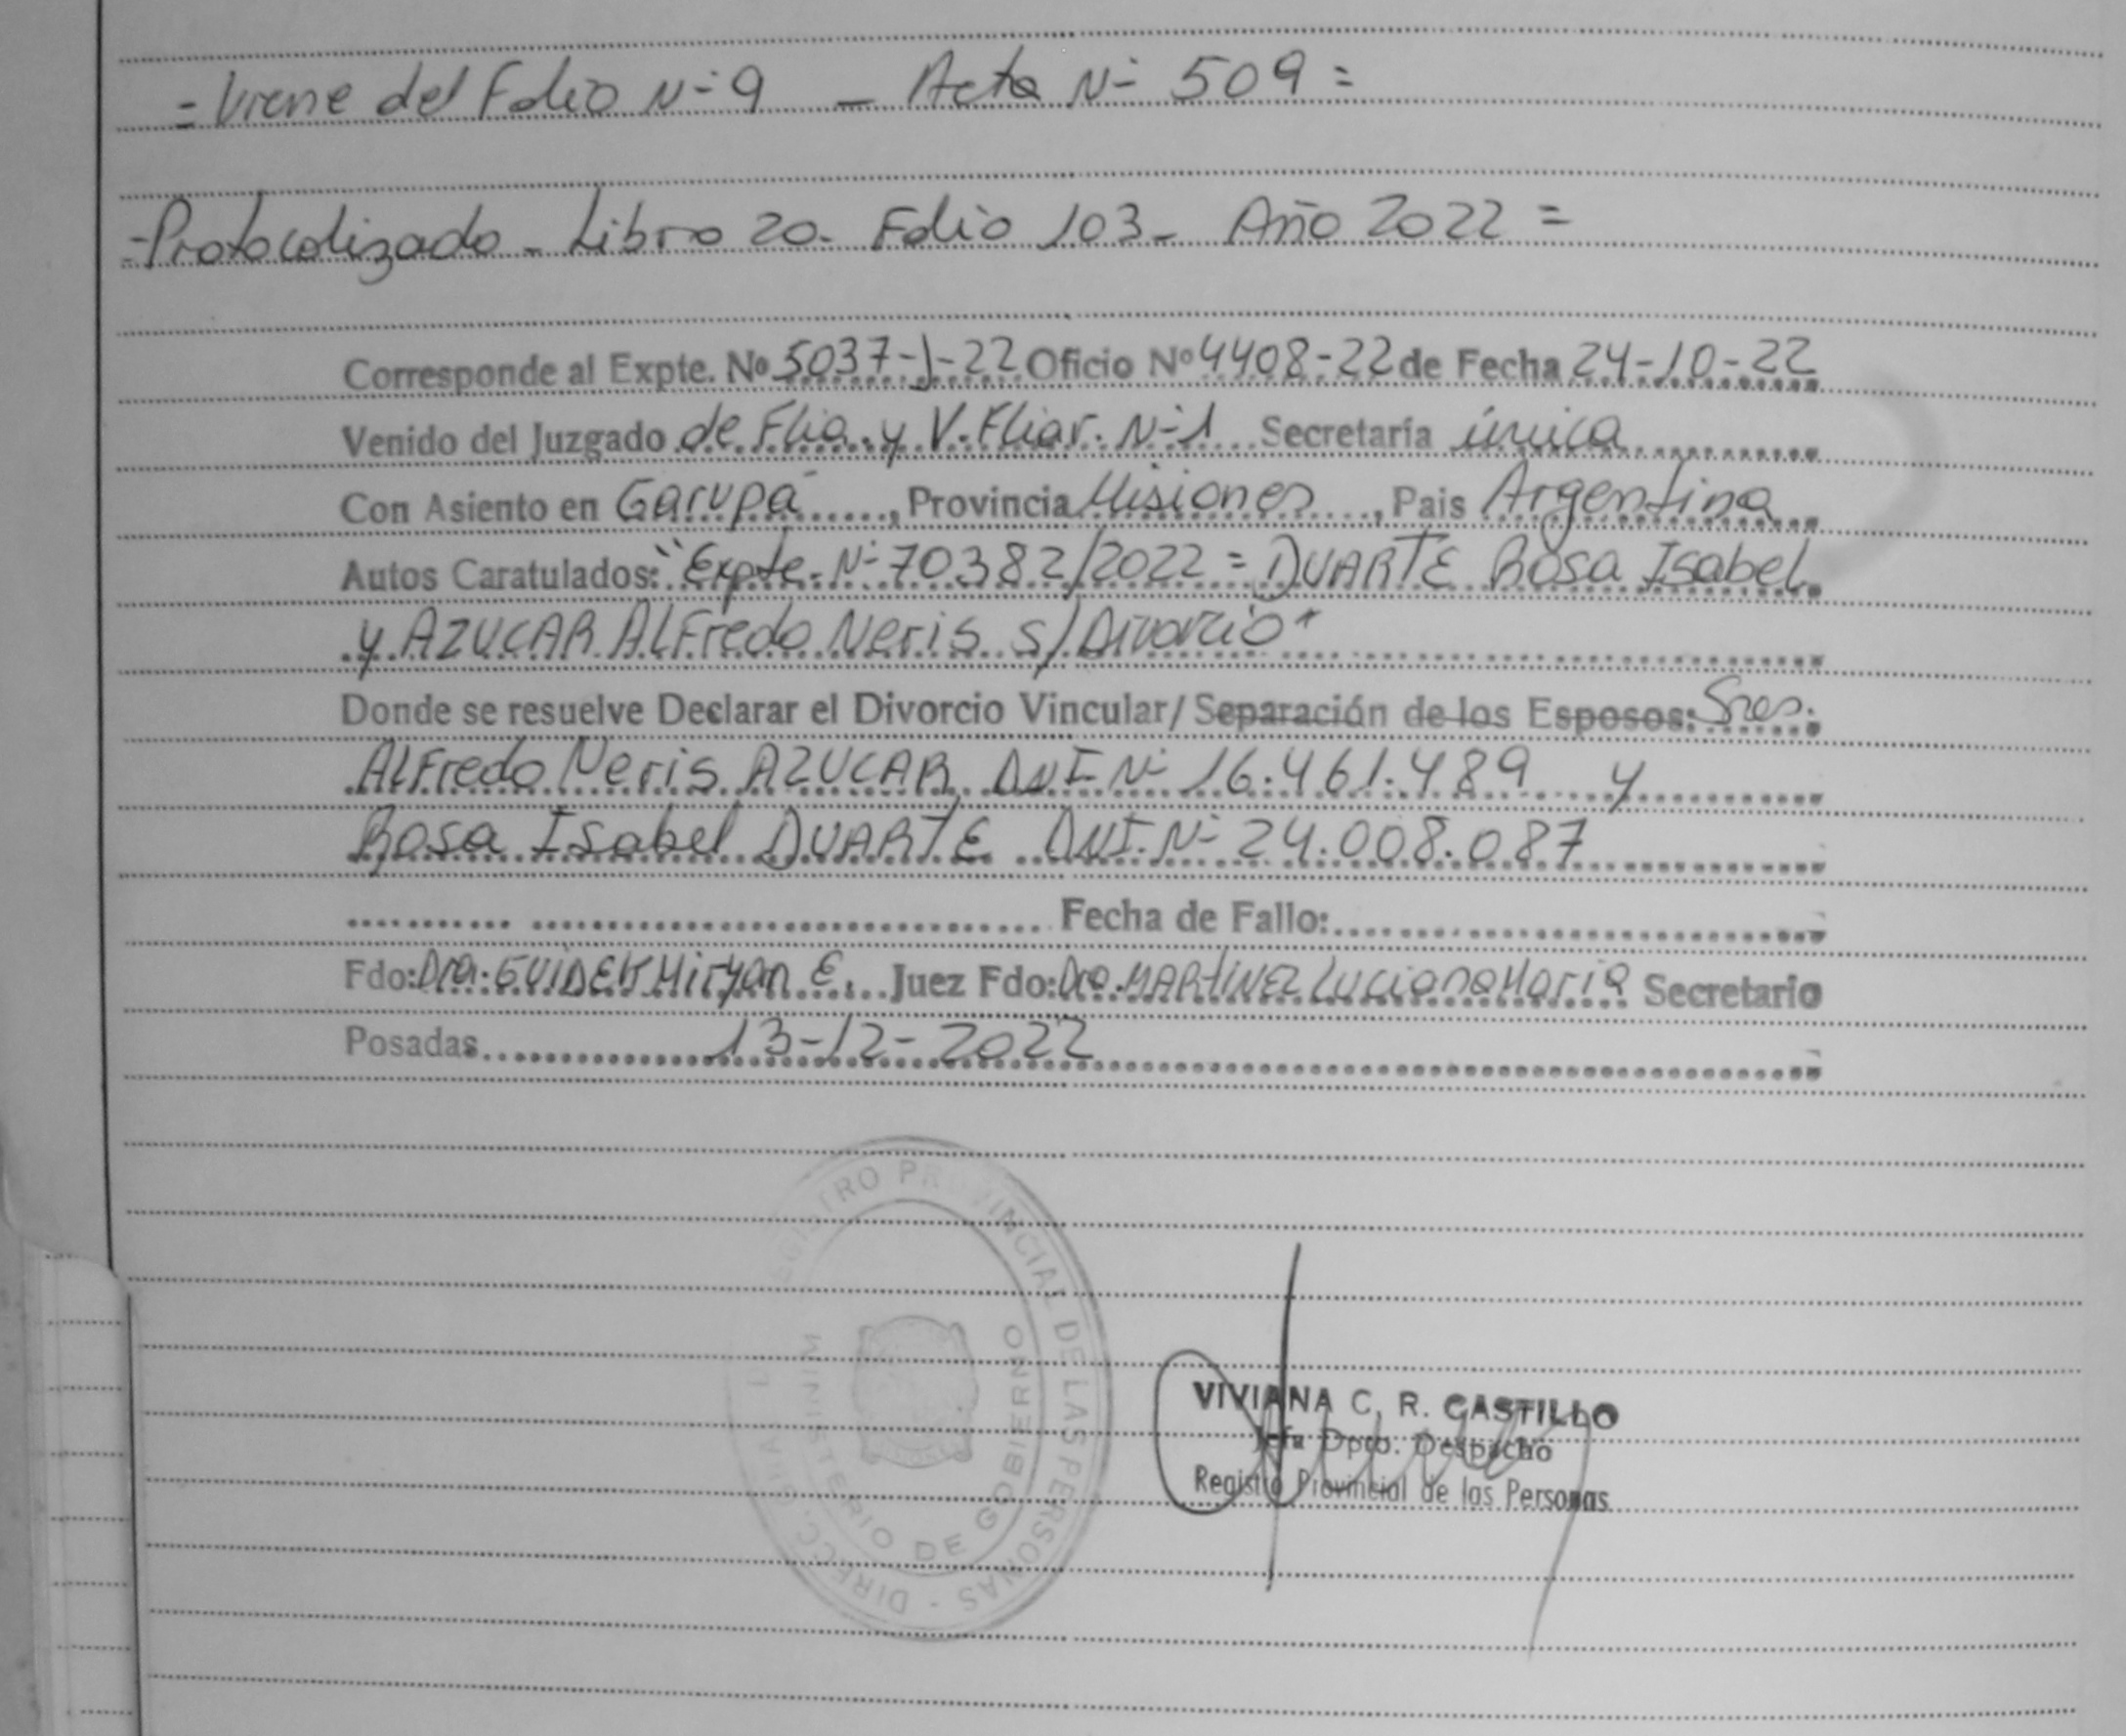 = Viene del Folio N- 9 - Acta N- 509 =
- Protocolizado - Libro 20 - Folio 103 - Año 2022 =
Corresponde al Expte. Nº 5037-J-22 Oficio Nº 4408-22 de Fecha 24-10-22
Venido del Juzgado de Flia. y V. Fliar. N-1 Secretaría única
Con Asiento en Garupá, Provincia Misiones, Pais Argentina
Autos Caratulados: "Expte. N- 70382/2022 = DUARTE Rosa Isabel
y AZUCAR Alfredo Neris s/Divorcio"
Donde se resuelve Declarar el Divorcio Vincular/ Separación de los Esposos: Sres.
Alfredo Neris AZUCAR DNI N- 16.461.489 y
Rosa Isabel DUARTE DNI. N- 24.008.087
Fecha de Fallo:
Fdo: Dra. Miryan E. Juez Fdo: Dra. MARTINEZ Luciana Maria Secretario
Posadas 13-12-2022
REGISTRO PROVINCIAL DE LAS PERSONAS - DIRECC.
MINISTERIO DE GOBIERNO
VIVIANA C. R. CASTILLO
Jefa Dpto. Despacho
Registro Provincial de las Personas